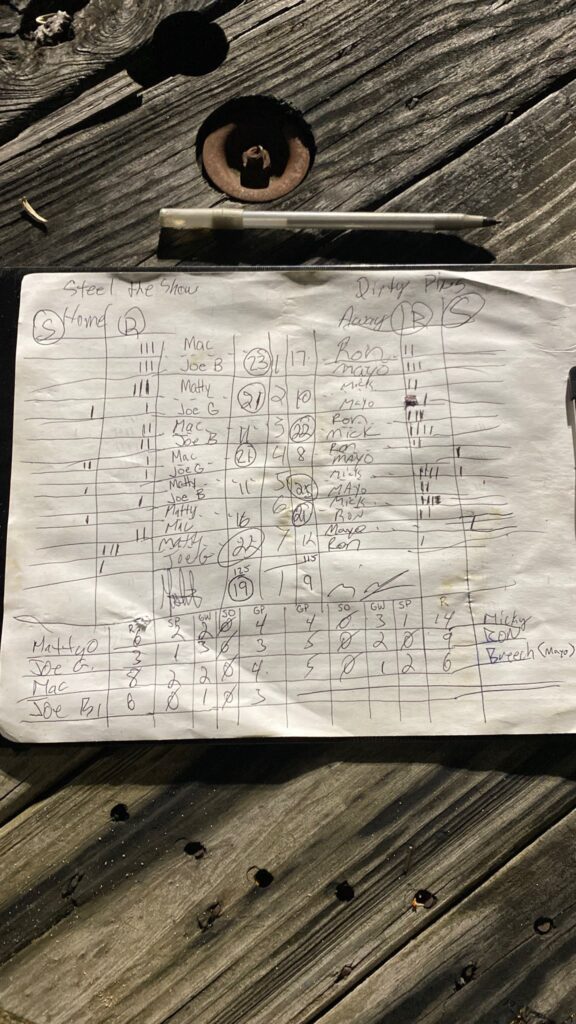 Steel the Show Dirty Pigs
S Home R Away R S
Mac 23 1 17 Ron
Joe B mayo
Matty 21 2 10 Mick
Joe G Mayo
Mac 11 3 22 Ron
Joe B Mick
Mac 21 4 8 Ron
Joe G mayo
Matty 11 5 Mick
Joe B MAYo
Matty 16 6 21 Mick
Mac Ron
Matty 22 7 Mayo
Joe G Ron
125 115
19 1 9
R SP GW SO GP GP SO GW SP R
MattyO 2 2 0 4 4 0 3 1 14 Micky
Joe G. 3 1 3 0 3 5 0 2 0 9 RON
Mac 8 2 2 0 4 5 0 1 2 6 Breech (Mayo)
Joe B. 6 0 1 0 3